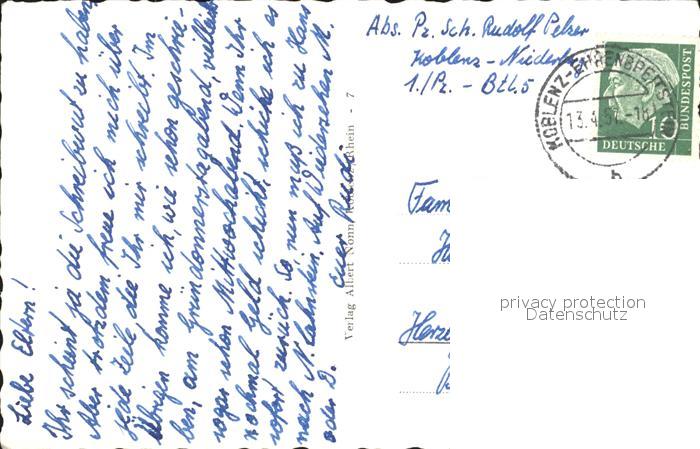 Liebe Eltern!
Ihr scheint ja die Schreibwut zu haben
Aber trotzdem freue ich mich über
jede Zeile die Ihr mir schreibt. Im
Übrigen komme ich, wie schon geschrie-
ben, am Gründonnerstagabend, vielleicht
sogar schon Mittwochabend. Wenn Ihr
nochmal Geld schickt, schicke ich es
sofort zurück. So nun muß ich zu Hans
nach N.lahnstein. Auf Wiedersehen M.
oder D.
Euer Rudi
Verlag Albert Nonn, Rhein - 7
Abs. Pz. Sch. Rudolf Pelzer
Koblenz-Niederb
1./Pz. - Btl.5
KOBLENZ-EHRENBREITST
13.4.57.-18
b
10
DEUTSCHE
BUNDESPOST
Fam
Herze
privacy protection
Datenschutz